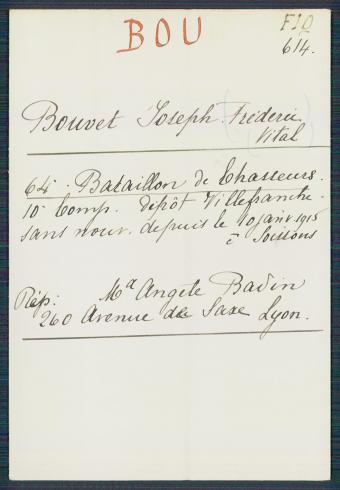 BOU
F10
614.
Bouvet Joseph (Frédéric
Vital)
64e. Bataillon de Chasseurs.
10e Comp. dépôt Villefranche.
sans nouv. depuis le 10 janv 1915
à Soissons
Rép: Ma Angele Badin
260 Avenue de Saxe Lyon.